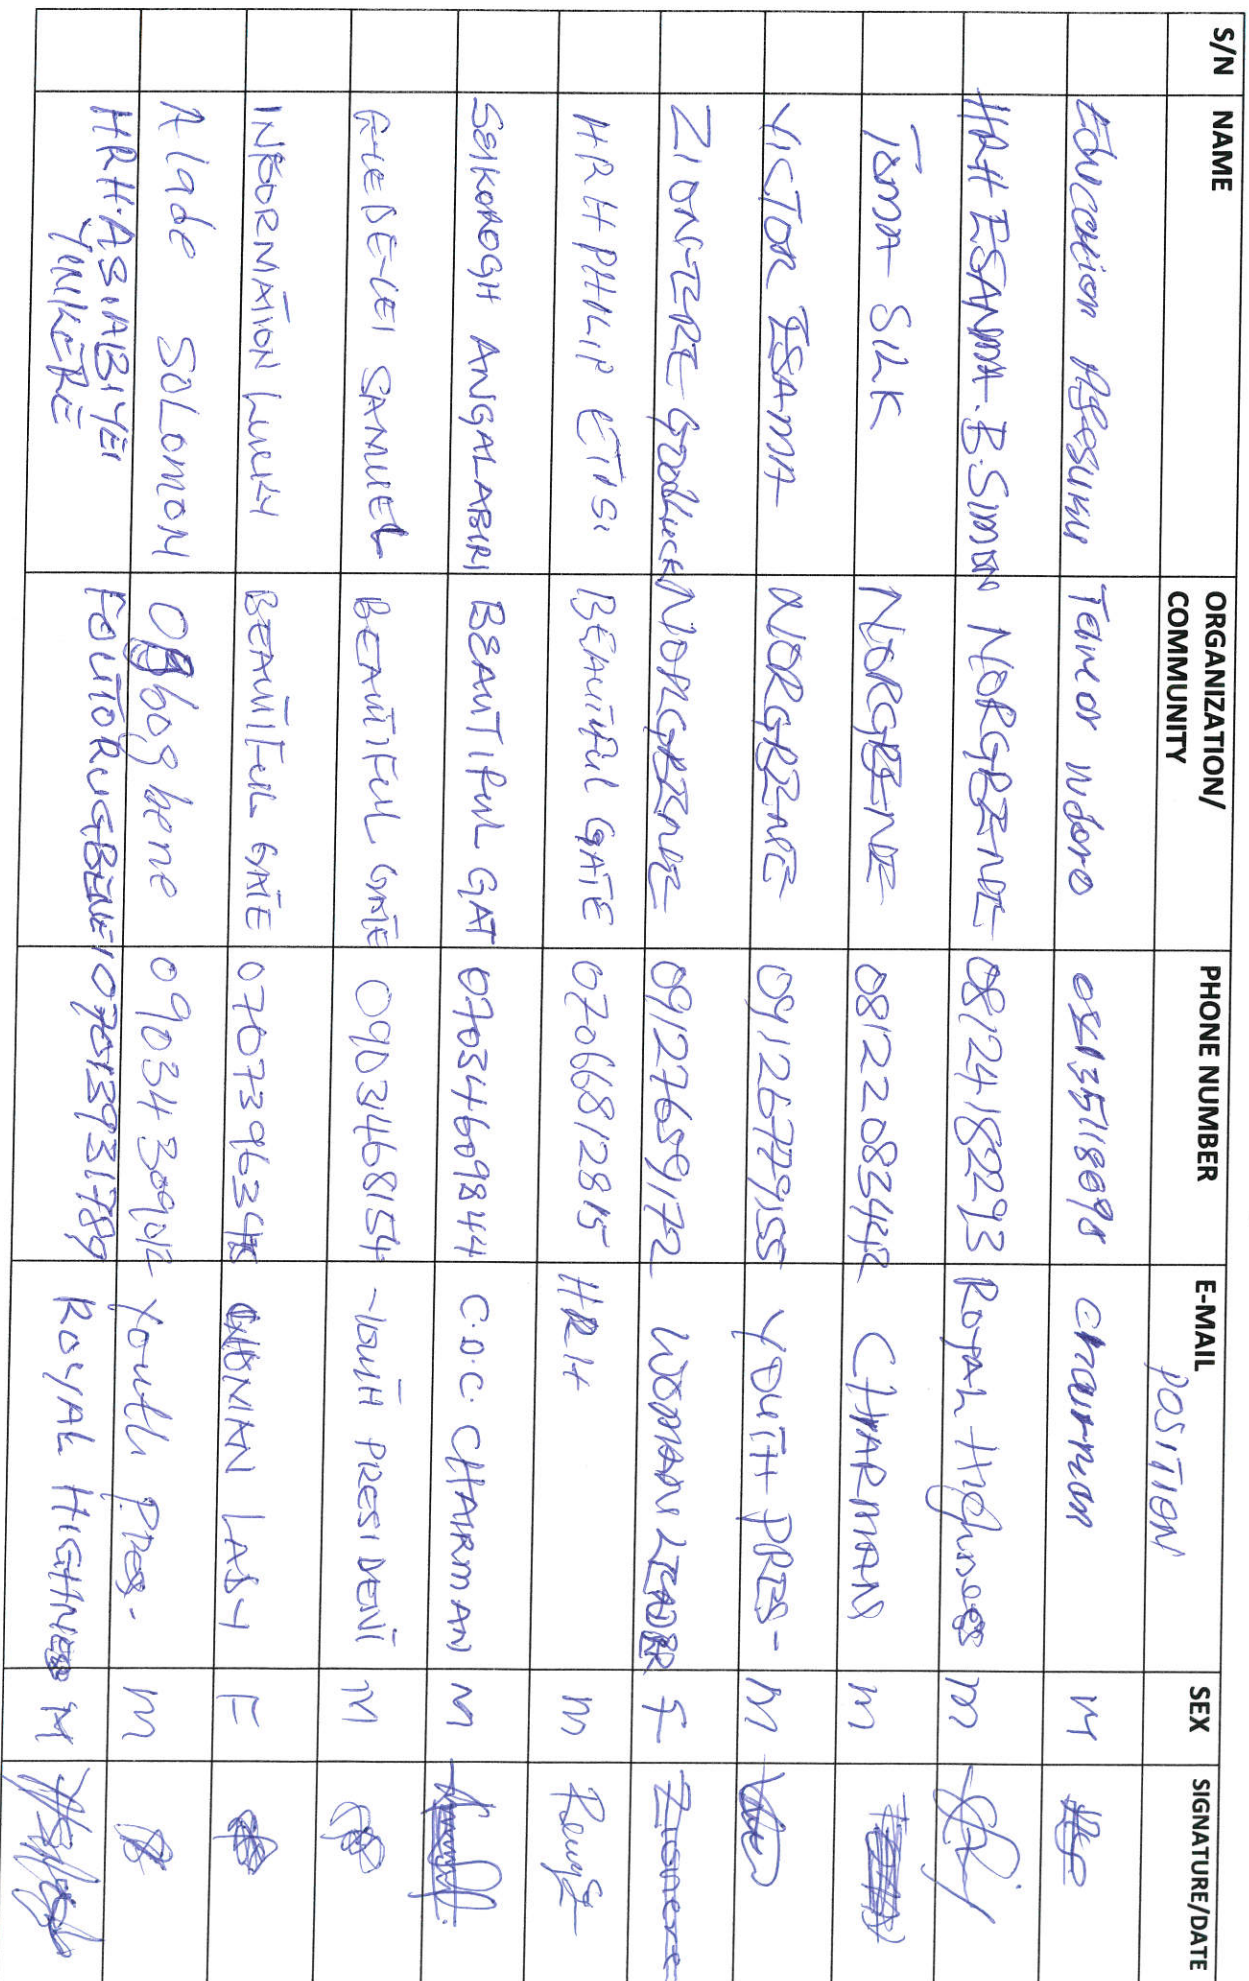 S/N NAME ORGANIZATION/ COMMUNITY PHONE NUMBER E-MAIL POSITION SEX SIGNATURE/DATE
Education M
Chairman
HRH ESANMA. B. SIMON NORGBENE 08124182293 Royal Highness m
Toma SILK NORGBENE 08122083442 CHAIRMAN m
VICTOR ESAMA NORGBENE 09126779155 YOUTH PRES- M
ZION-TERE Goodluck NORGBENE 09127659172 WOMAN LEADER f Zionere
HRH PHILIP ETISI BEAUTIFUL GATE 07066812815 HRH m
SEIKOROGH ANGALABIRI BEAUTIFUL GAT 07034609844 C.D.C. CHAIRMAN M
SAMUEL BEAUTIFUL GATE 0903468154 YOUTH PRESIDENT M
INFORMATION LUCKY BEAUTIFUL GATE WOMAN LADY F
Alade SOLOMON Ogbogbene Youth Pres- m
HRH. ASIABIYEI 07013931789 ROYAL HIGHNESS M
YINKERE